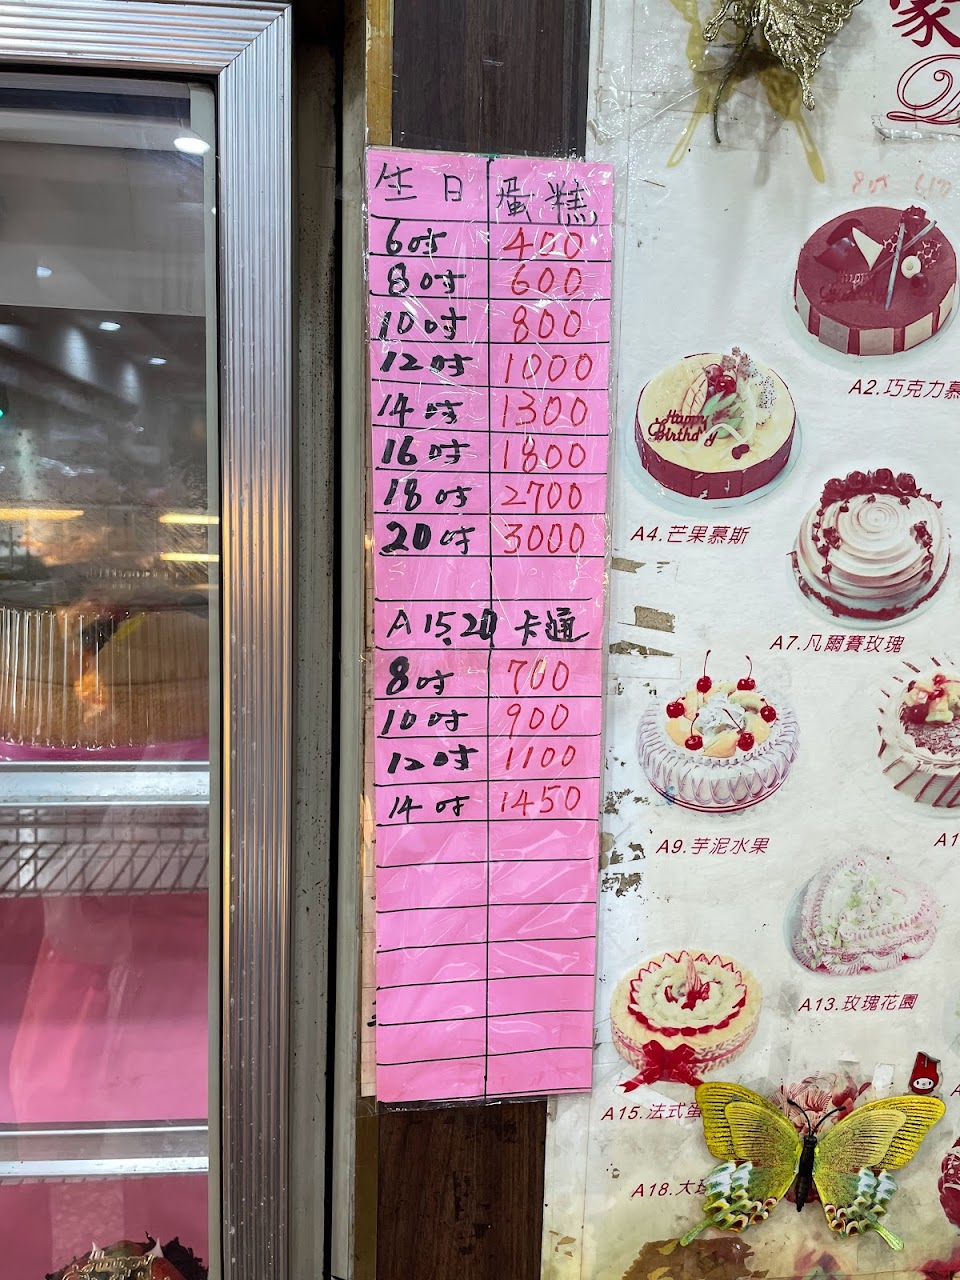 生日 蛋糕
6吋 400
8吋 600
10吋 800
12吋 1000
14吋 1300
16吋 1800
18吋 2700
20吋 3000
A15.20 卡通
8吋 700
10吋 900
12吋 1100
14吋 1450
豪
8吋
A2.巧克力慕
Happy
Birthday
A4.芒果慕斯
A7.凡爾賽玫瑰
A9.芋泥水果
A1
A13.玫瑰花園
A15.法式蛋
A18.大